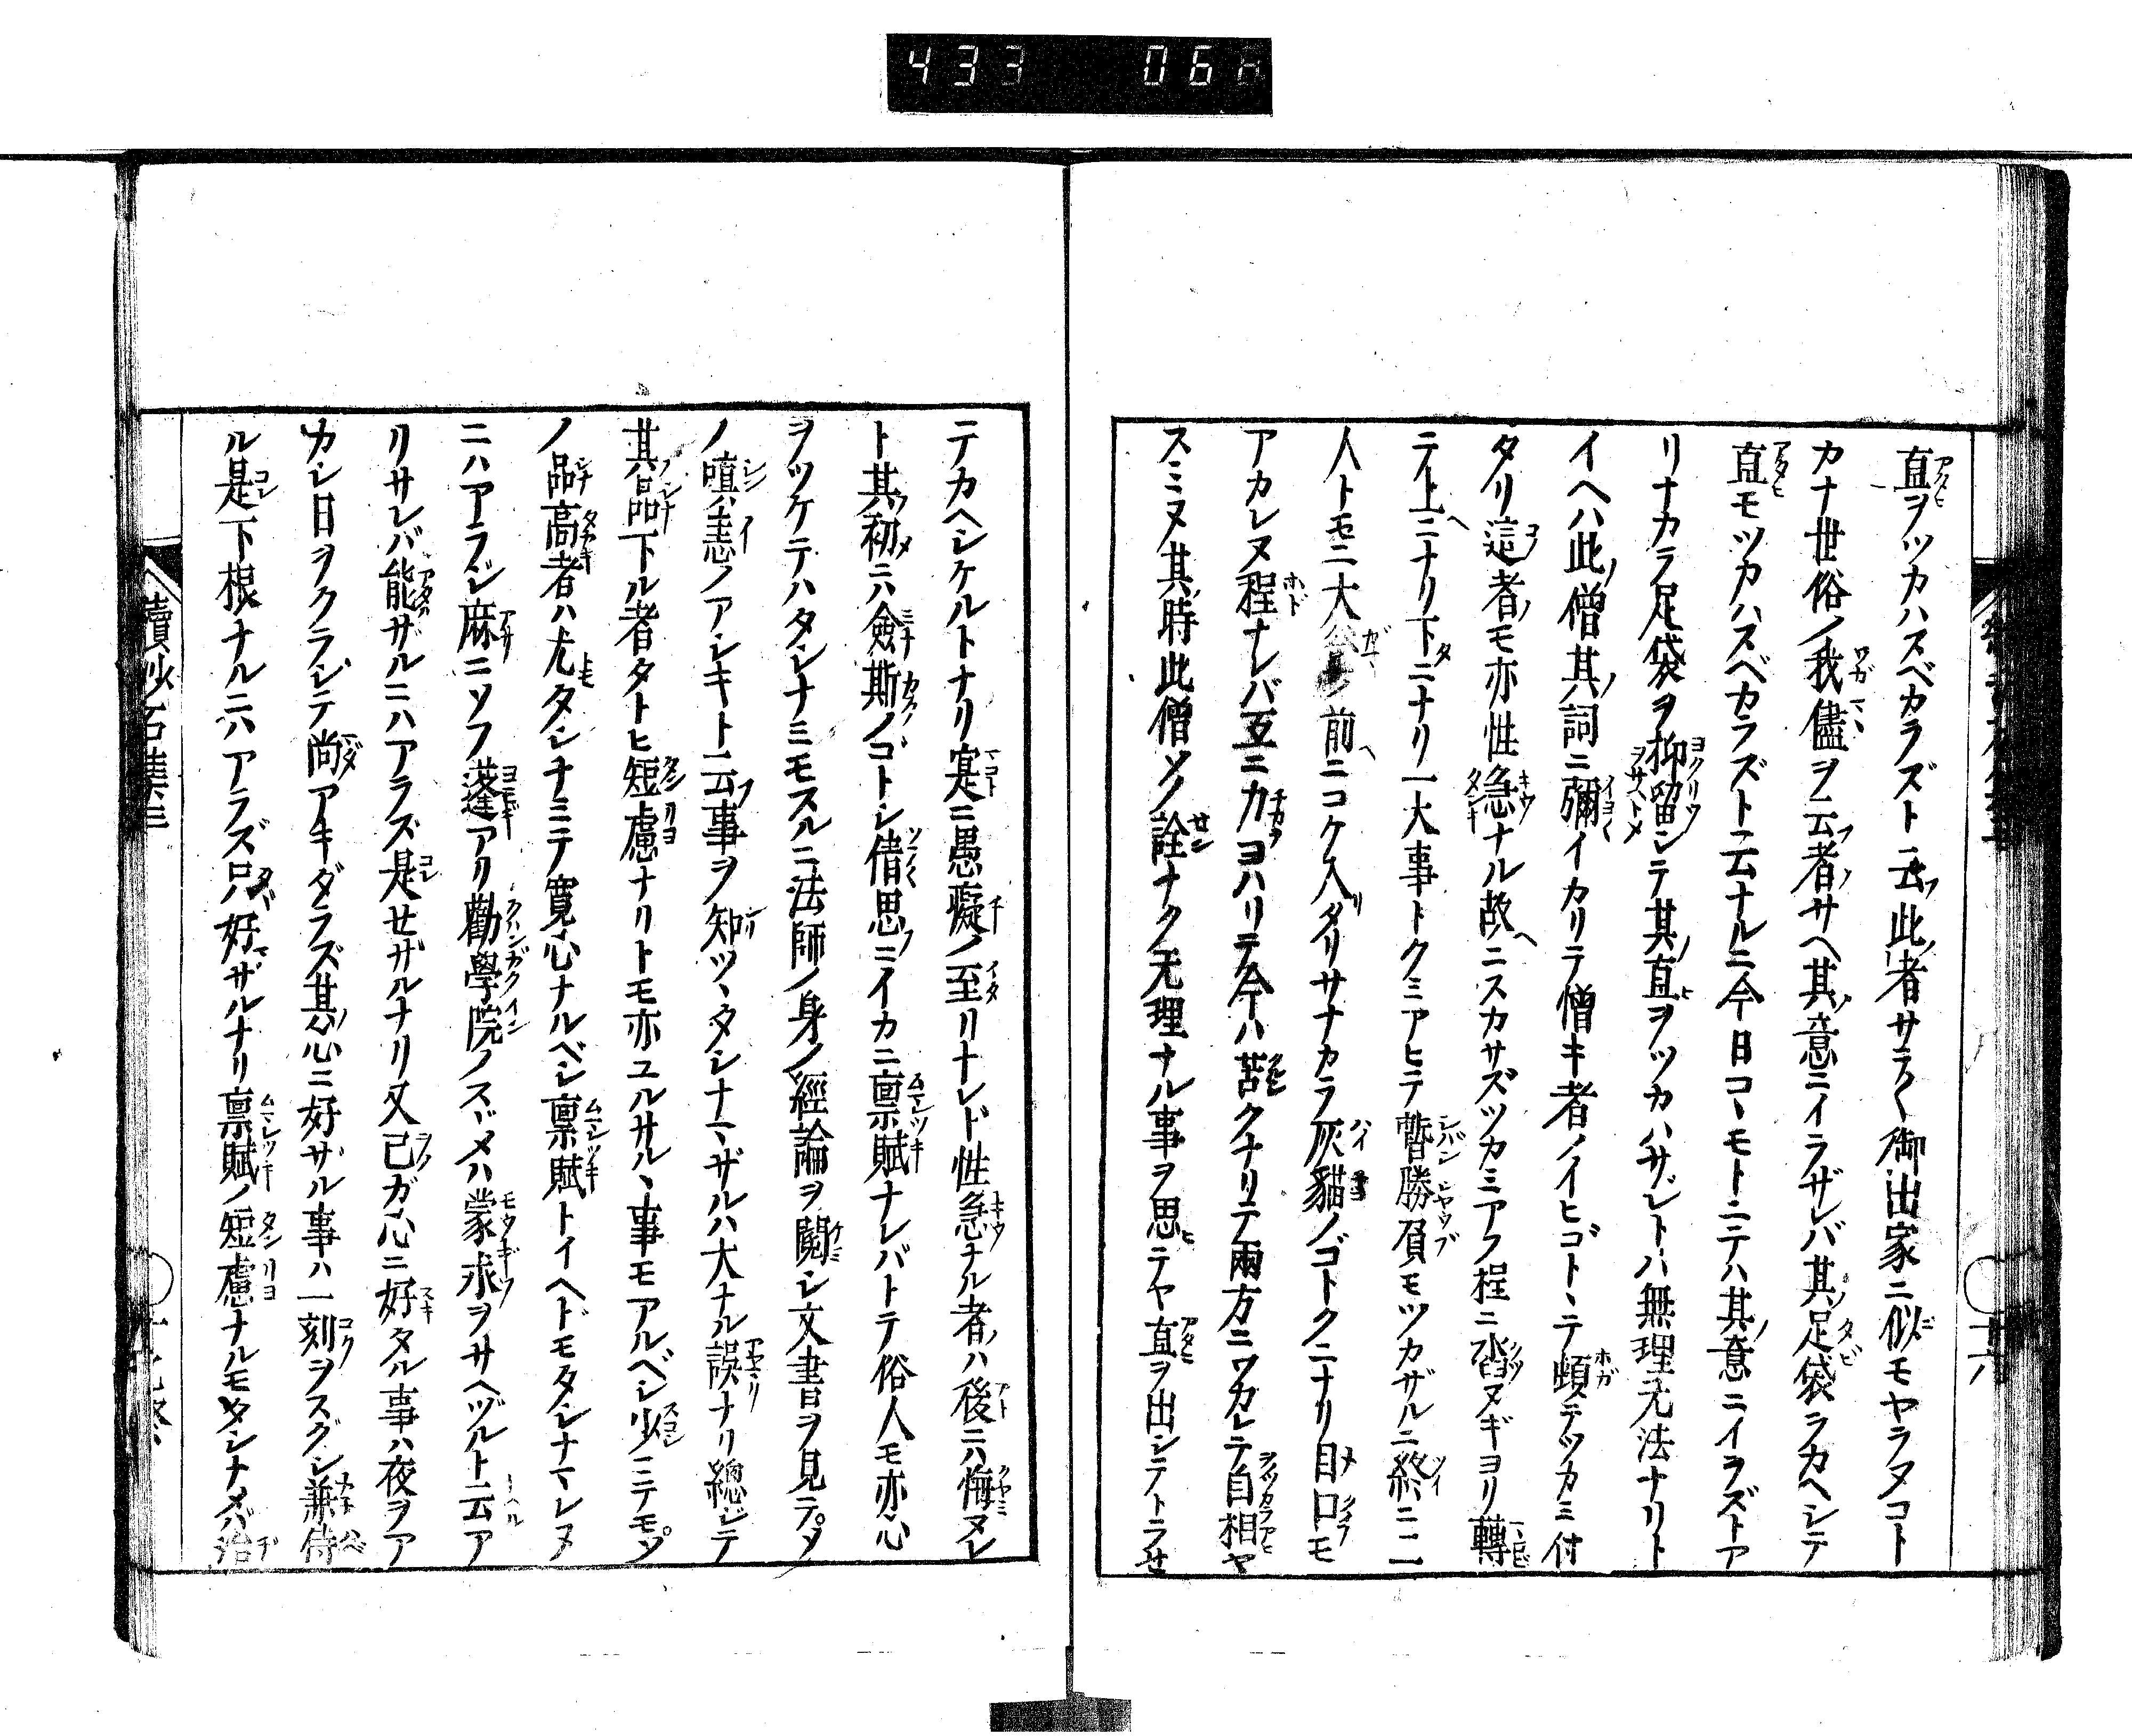 433 06
直ヲツカハスベカラズト云此者サテ〱御出家ニ似モヤラヌコト
カナ世俗ノ我儘ヲ云者サヘ其意ニイラザレバ其足袋ヲカヘシテ
直モツカハスベカラズト云ナルニ今日コヽモトニテハ其意ニイラズトア
リナカラ足袋ヲ抑留シテ其直ヲツカハサレトハ無理无法ナリト
イヘハ此僧其詞ニ彌イカリテ憎キ者ノイヒゴトヽテ頬テツカミ付
タリ這者モ亦性急ナル故ニスカサズツカミアフ程ニ沓ヌギヨリ轉
テ上ニナリ下ニナリ一大事トクミアヒテ暫勝負モツカザルニ終ニ二
人トモニ大 前ニコケ入タリサナカラ灰猫ノゴトクニナリ目口モ
アカレヌ程ナレバ互ニ力ヨハリテ今ハ苦クナリテ兩方ニワカレテ自相ヤ
スミヌ其時此僧ソノ詮ナク无理ナル事ヲ思テヤ直ヲ出シテトラセ
テカヘシケルトナリ寔ニ愚癡ノ至リナレド性急ナル者ハ後ニハ悔ヌレ
ト其初ニハ僉斯ノゴトシ倩思ニイカニ稟賦ナレバトテ俗人モ亦心
ヲツケテハタシナミモスルニ法師ノ身ノ經論ヲ閲シ文書ヲ見テダ
ノ嗔恚ノアシキト云事ヲ知ツヽタシナマザルハ大ナル誤ナリ總シテ
其品下ル者タトヒ短慮ナリトモ亦ユルサルヽ事モアルベシ少ニテモソ
ノ品高者ハ尤タシナミテ寛心ナルベシ稟賦トイヘドモタシナマレヌ
ニハアラジ麻ニソフ蓬アリ勸學院ノスヾメハ蒙求ヲサヘヅルト云ア
リサレバ能ザルニハアラズ是セザルナリ又己ガ心ニ好タル事ハ夜ヲア
カシ日ヲクラシテ尚アキダラズ其心ニ好ザル事ハ一刻ヲスグシ兼侍
ル是下根ナルニハアラズ只好ザルナリ稟賦ノ短慮ナルモタシナメバ治
續沙石集三